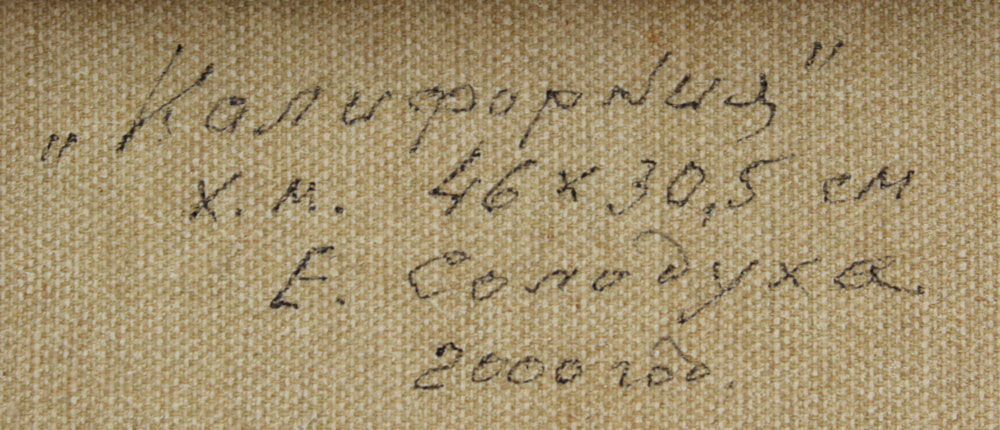 „Калифорния"
х.м. 46х30,5 см
Е. Солодуха
2000 год.